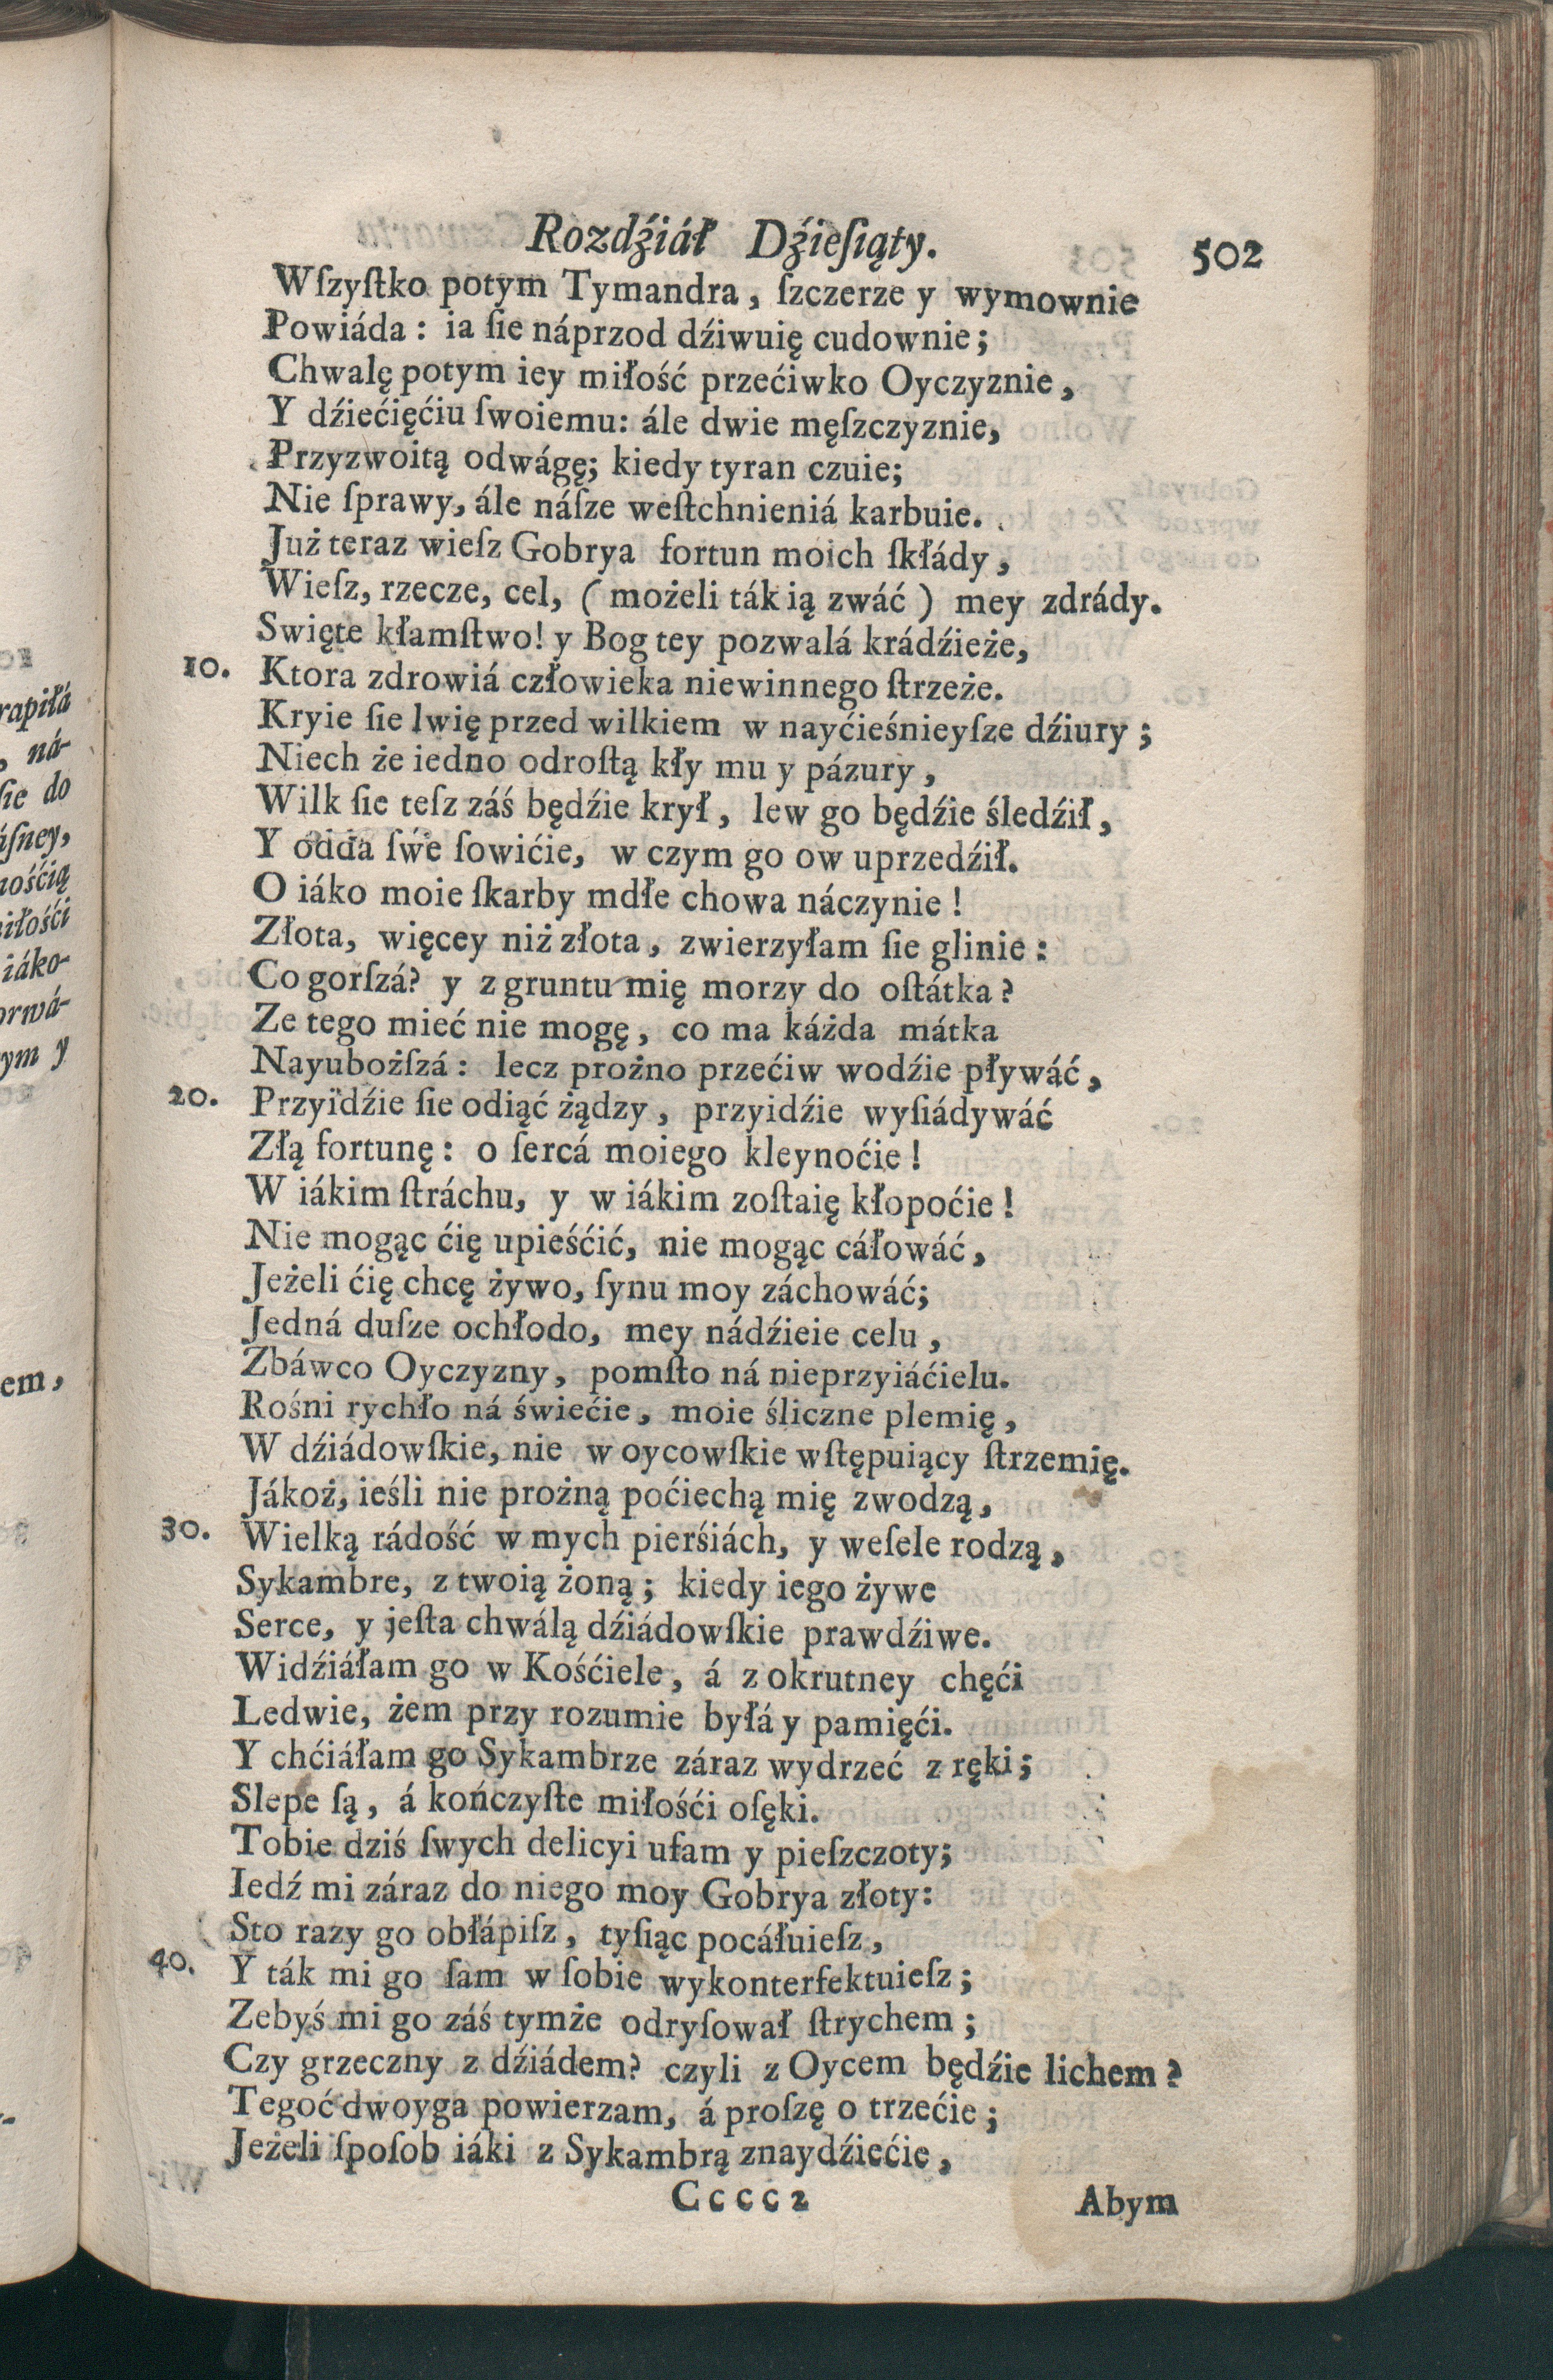 Rozdźiáł Dźieſiąty. 502
Wſzyſtko potym Tymandra, ſzczerze y wymownie
Powiáda: ia ſie náprzod dźiwuię cudownie;
Chwalę potym iey miłość przećiwko Oyczyznie,
Y dźiećięćiu ſwoiemu: ále dwie męſzczyznie,
Przyzwoitą odwágę; kiedy tyran czuie;
Nie ſprawy, ále náſze weſtchnieniá karbuie.
Już teraz wieſz Gobrya fortun moich ſkłády,
Wieſz, rzecze, cel, (możeli ták ią zwáć) mey zdrády.
Swięte kłamſtwo! y Bog tey pozwalá krádźieże,
10. Ktora zdrowiá człowieka niewinnego ſtrzeże.
Kryie ſie lwię przed wilkiem w nayćieśnieyſze dźiury;
Niech że iedno odroſtą kły mu y pázury,
Wilk ſie teſz záś będźie krył, lew go będźie śledźił,
Y odda ſwe ſowićie, w czym go ow uprzedźił.
O iáko moie ſkarby mdłe chowa náczynie!
Złota, więcey niż złota, zwierzyłam ſie glinie:
Co gorſzá? y z gruntu mię morzy do oſtátka?
Ze tego mieć nie mogę, co ma káżda mátka
Nayubożſzá: lecz prożno przećiw wodźie pływáć,
20. Przyidźie ſie odiąć żądzy, przyidźie wyſiádywáć
Złą fortunę: o ſercá moiego kleynoćie!
W iákim ſtráchu, y w iákim zoſtaię kłopoćie!
Nie mogąc ćię upieśćić, nie mogąc cáłowáć,
Jeżeli ćię chcę żywo, ſynu moy záchowáć;
Jedná duſze ochłodo, mey nádźieie celu,
Zbáwco Oyczyzny, pomſto ná nieprzyiáćielu.
Rośni rychło ná świećie, moie śliczne plemię,
W dźiádowſkie, nie w oycowſkie wſtępuiący ſtrzemię.
Jákoż, ieśli nie prożną poćiechą mię zwodzą,
30. Wielką rádość w mych pierśiách, y weſele rodzą,
Sykambre, z twoią żoną; kiedy iego żywe
Serce, y jeſta chwálą dźiádowſkie prawdźiwe.
Widźiáłam go w Kośćiele, á z okrutney chęći
Ledwie, żem przy rozumie byłá y pamięći.
Y chćiáłam go Sykambrze záraz wydrzeć z ręki;
Slepe ſą, á kończyſte miłośći oſęki.
Tobie dziś ſwych delicyi ufam y pieſzczoty;
Iedź mi záraz do niego moy Gobrya złoty:
Sto razy go obłápiſz, tyſiąc pocáłuieſz,
40. Y ták mi go ſam w ſobie wykonterfektuieſz;
Zebyś mi go záś tymże odryſował ſtrychem;
Czy grzeczny z dźiádem? czyli z Oycem będźie lichem?
Tegoć dwoyga powierzam, á proſzę o trzećie;
Jeżeli ſpoſob iáki z Sykambrą znaydźiećie,
Cccc2 Abym
rapiłá
, ná-
ſie do
áſney,
nośćią
iłośći
iáko-
orwá-
ym y
em,